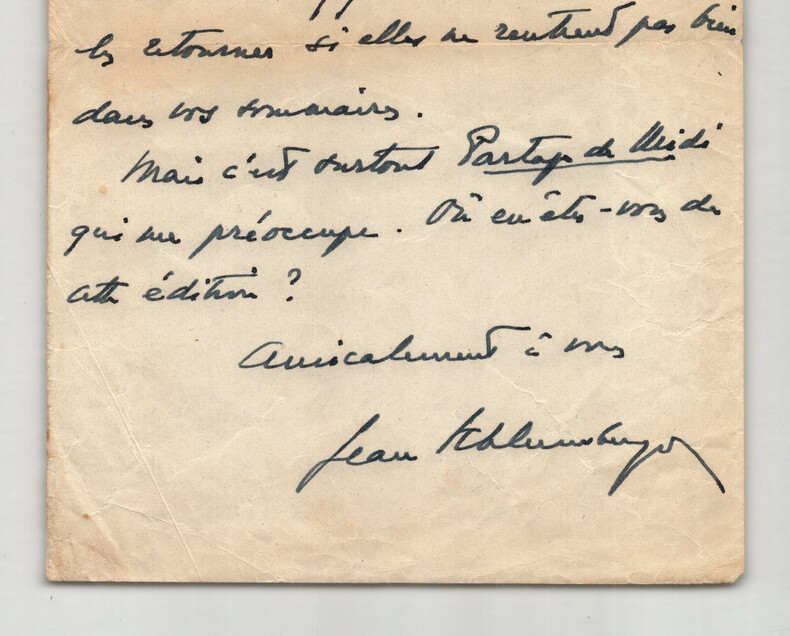 les retourner si elles ne rentrent pas bien
dans vos sommaires.
Mais c'est surtout Partage de Midi
qui me préoccupe. Où en êtes-vous de
cette édition ?
Amicalement à vous
Jean Schlumberger